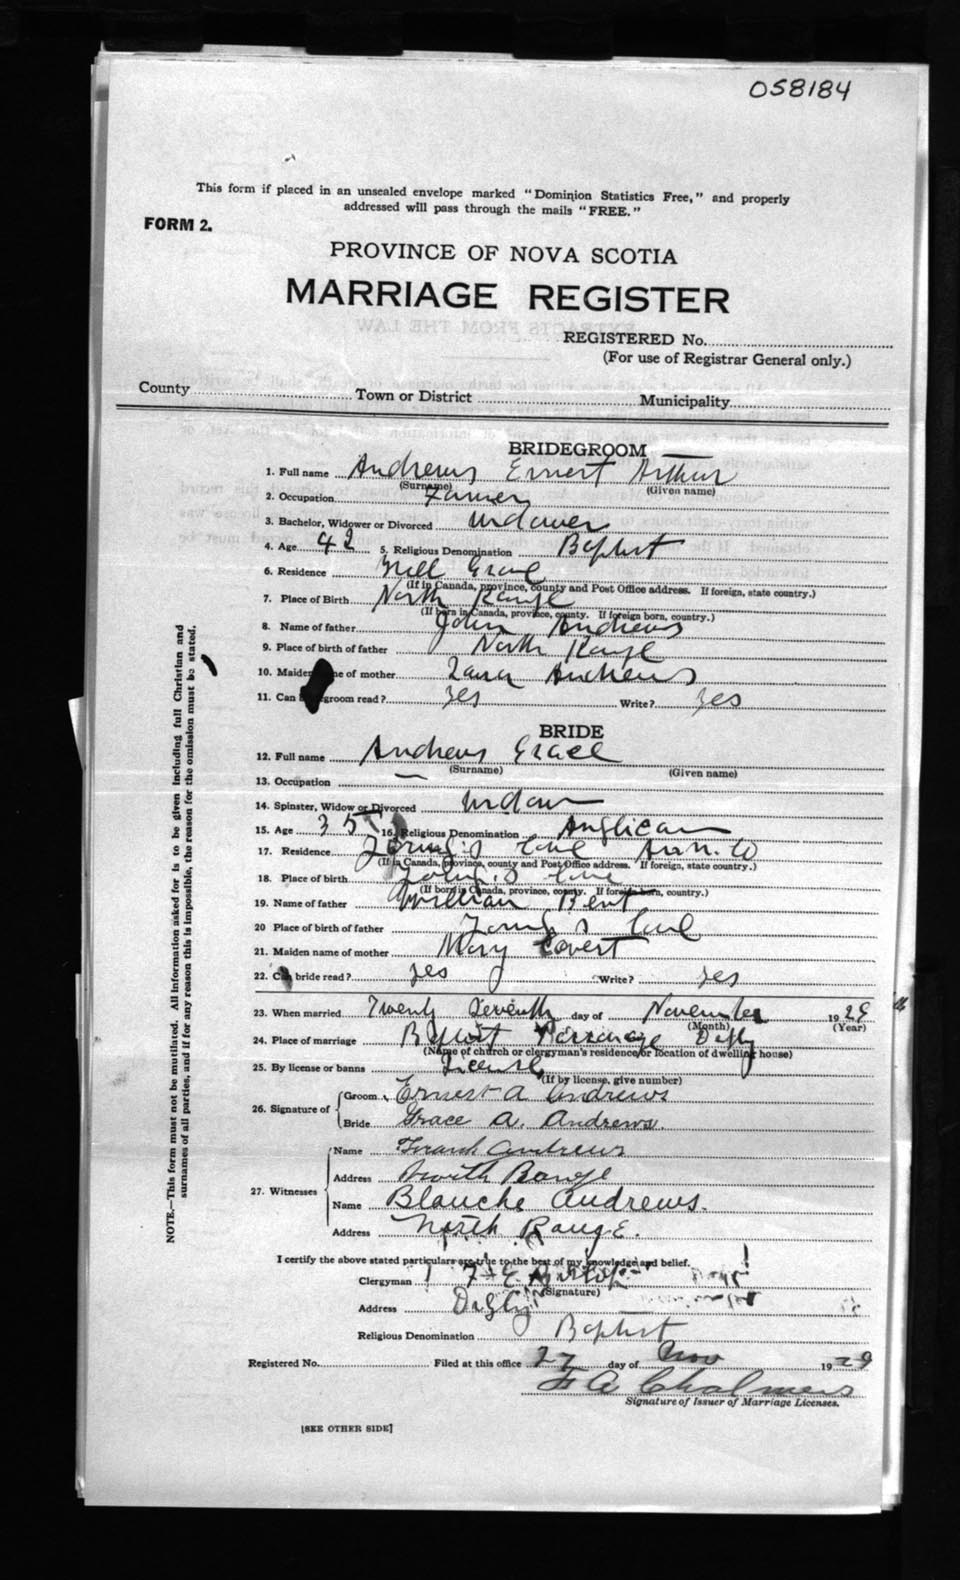 058184
This form if placed in an unsealed envelope marked "Dominion Statistics Free," and properly
addressed will pass through the mails "FREE."
FORM 2.
PROVINCE OF NOVA SCOTIA
MARRIAGE REGISTER
REGISTERED No.
(For use of Registrar General only.)
County Town or District Municipality
BRIDEGROOM
1. Full name Andrews Ernest Arthur
(Surname) (Given name)
2. Occupation Farmer
3. Bachelor, Widower or Divorced Widower
4. Age 42 5. Religious Denomination Baptist
6. Residence Hill Grove
(If in Canada, province, county and Post Office address. If foreign, state country.)
7. Place of Birth North Range
(If born in Canada, province, county. If foreign born, country.)
8. Name of father John Andrews
9. Place of birth of father North Range
10. Maiden name of mother Andrews
11. Can groom read? yes Write? yes
BRIDE
12. Full name Andrews Grace
(Surname) (Given name)
13. Occupation —
14. Spinster, Widow or Divorced Widow
15. Age 35 16. Religious Denomination Anglican
17. Residence Young's Cove Ann. Co
(If in Canada, province, county and Post Office address. If foreign, state country.)
18. Place of birth Young's Cove
(If born in Canada, province, county. If foreign born, country.)
19. Name of father William Bent
20 Place of birth of father Young's Cove
21. Maiden name of mother Mary Covert
22. Can bride read? yes Write? yes
23. When married Twenty Seventh day of November 1929
(Month) (Year)
24. Place of marriage Baptist Parsonage Digby
(Name of church or clergyman's residence or location of dwelling house)
25. By license or banns License
(If by license, give number)
26. Signature of Groom Ernest A Andrews
Bride Grace A. Andrews.
27. Witnesses Name Frank Andrews
Address North Range
Name Blanche Andrews.
Address North Range.
I certify the above stated particulars are true to the best of my knowledge and belief.
Clergyman
(Signature)
Address Digby
Religious Denomination Baptist
Registered No. Filed at this office 27 day of Nov 1929
F A Chalmers
Signature of Issuer of Marriage Licenses.
[SEE OTHER SIDE]
NOTE.—This form must not be mutilated. All information asked for is to be given including full Christian and
surnames of all parties, and if for any reason this is impossible, the reason for the omission must be stated.